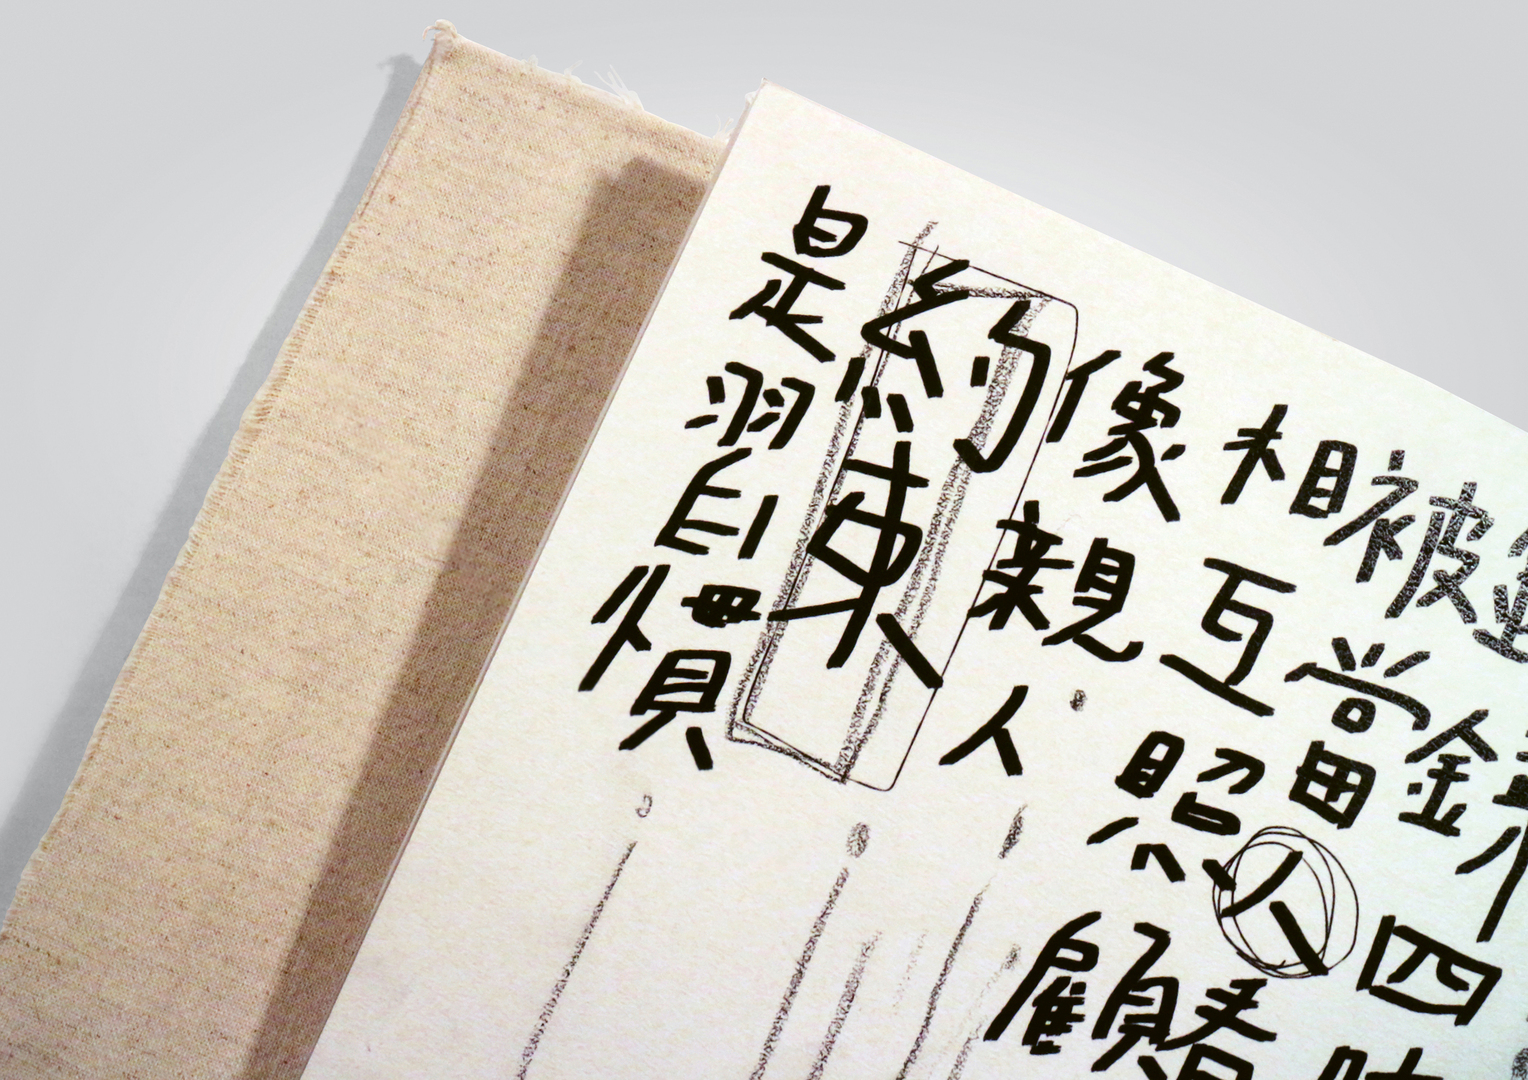 四
被當人看
相互照顧
像親人
約束
是習慣